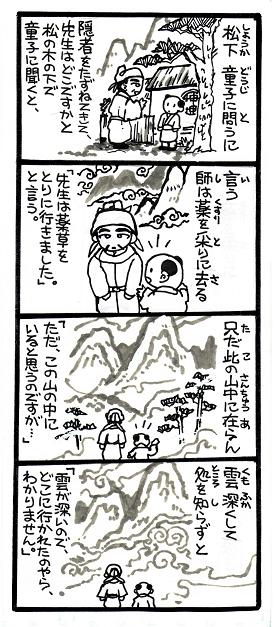 しょうか どうじ と
松下 童子に問うに
隠者をたずねてきて、
先生は、どこですかと
松の木の下で
童子に聞くと、
い
言う
し くすり と さ
師は薬を采りに去る
「先生は薬草を
とりに行きました」
と言う。
た こ さんちゅう あ
只だ此の山中に在らん
「ただ、この山の中に
いると思うのですが…」
くも ふか
雲深くして
ところ し
処を知らずと
「雲が深いので、
どこに行かれたのやら、
わかりません」